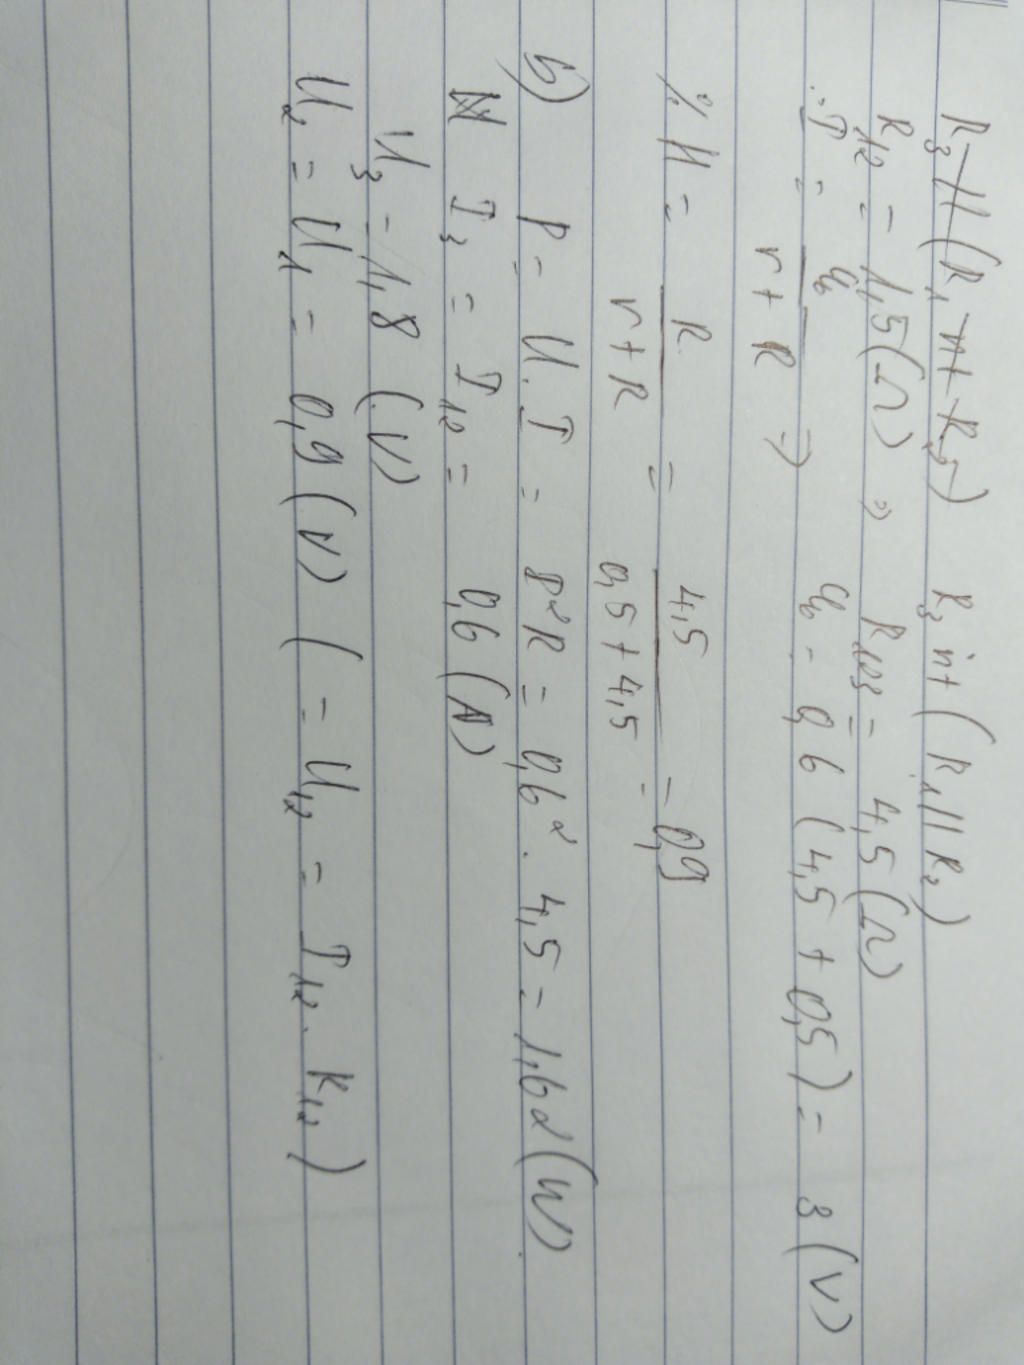 R3 // (R1 nt R3) R3 nt (R1 // R2)
R12 = 1,5 (Ω) => R123 = 4,5 (Ω)
∴ I = U0 / (r + R) => U0 = 0,6 (4,5 + 0,5) = 3 (V)
% H = R / (r + R) = 4,5 / (0,5 + 4,5) = 0,9
b) P = U.I = I²R = 0,6². 4,5 = 1,62 (W)
I3 = I12 = 0,6 (A)
U3 = 1,8 (V)
U2 = U1 = 0,9 (V) ( = U12 = I12. R12)